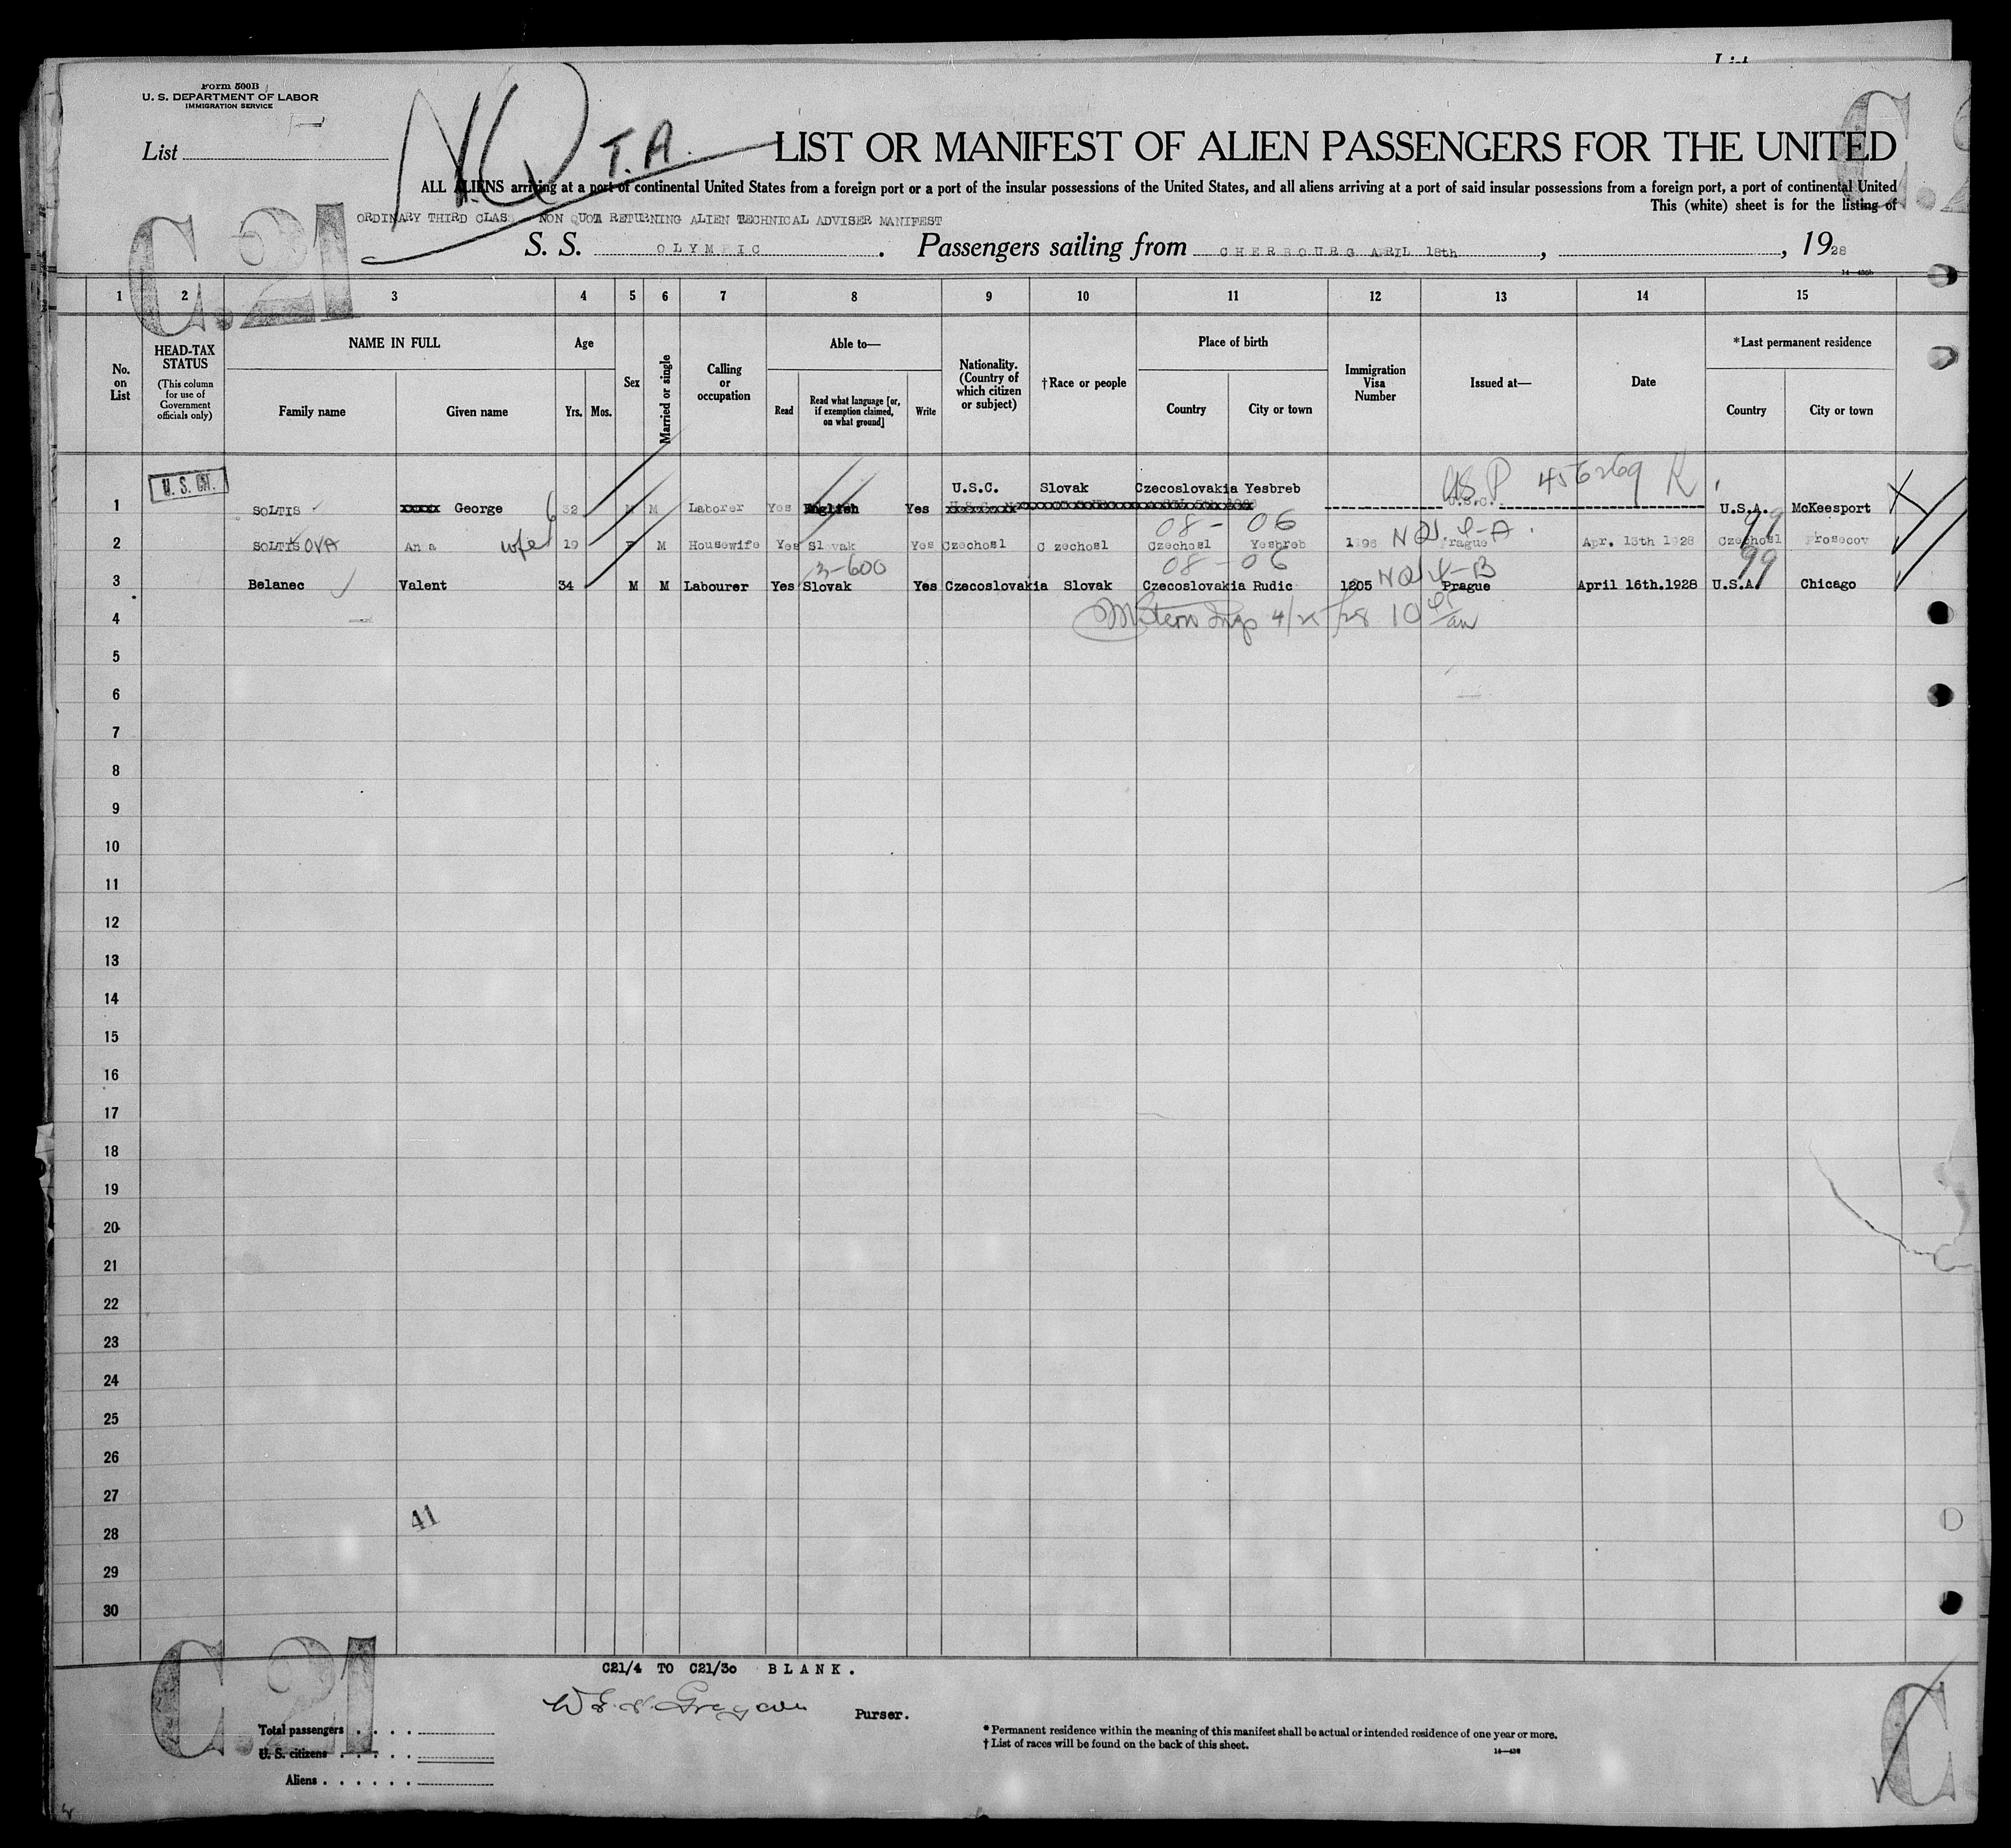 Form 500B
U. S. DEPARTMENT OF LABOR
IMMIGRATION SERVICE
List
NQ T.A.
LIST OR MANIFEST OF ALIEN PASSENGERS FOR THE UNITED
ALL ALIENS arriving at a port of continental United States from a foreign port or a port of the insular possessions of the United States, and all aliens arriving at a port of said insular possessions from a foreign port, a port of continental United
This (white) sheet is for the listing of
ORDINARY THIRD CLAS NON QUOTA RETURNING ALIEN TECHNICAL ADVISER MANIFEST
C.21
S. S. OLYMPIC. Passengers sailing from CHERBOURG APRIL 18th, , 1928
1 2 3 4 5 6 7 8 9 10 11 12 13 14 15
No. on List
HEAD-TAX STATUS (This column for use of Government officials only)
NAME IN FULL
Family name Given name
Age
Yrs. Mos.
Sex
Married or single
Calling or occupation
Able to—
Read
Read what language [or, if exemption claimed, on what ground]
Write
Nationality. (Country of which citizen or subject)
†Race or people
Place of birth
Country City or town
Immigration Visa Number
Issued at—
Date
*Last permanent residence
Country City or town
U.S.C. Slovak Czecoslovakia Yesbreb USP 456269 R
1 SOLTIS George 32 M M Laborer Yes English Yes U.S.C. U.S.A. McKeesport
08-06 99
2 SOLTISOVA Anna wife 19 F M Housewife Yes Slovak Yes Czechosl Czechosl Czechosl Yesbreb 1296 Prague Apr. 13th 1928 Czechosl Prosecov
3-600 08-06 99
3 Belanec Valent 34 M M Labourer Yes Slovak Yes Czecoslovakia Slovak Czecoslovakia Rudic 1205 Prague April 16th.1928 U.S.A. Chicago
4
5
6
7
8
9
10
11
12
13
14
15
16
17
18
19
20
21
22
23
24
25
26
27
41
28
29
30
C.21
C21/4 TO C21/30 BLANK.
Purser.
Total passengers . . . .
U. S. citizens . . . . .
Aliens . . . . . .
* Permanent residence within the meaning of this manifest shall be actual or intended residence of one year or more.
† List of races will be found on the back of this sheet.
C